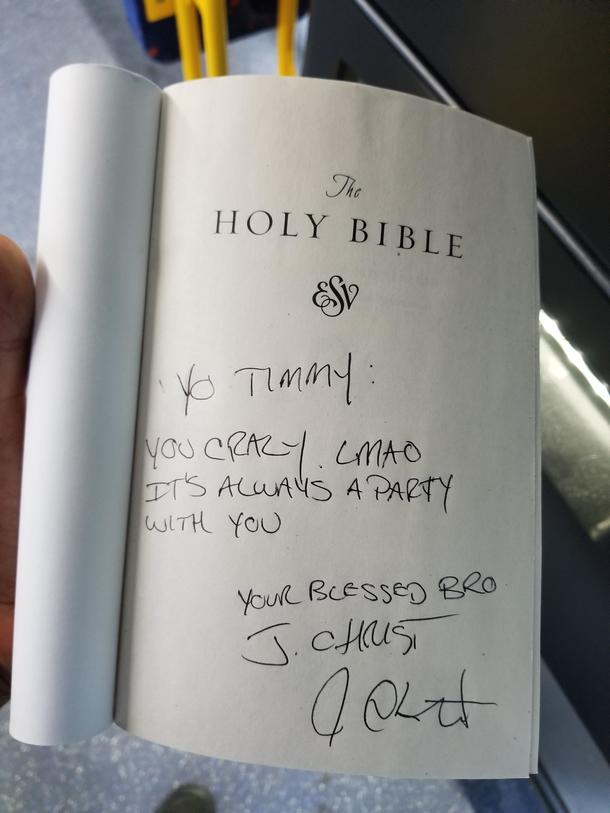 The
HOLY BIBLE
ESV
YO TIMMY:
YOU CRAZY. LMAO
IT'S ALWAYS A PARTY
WITH YOU
YOUR BLESSED BRO
J. CHRIST